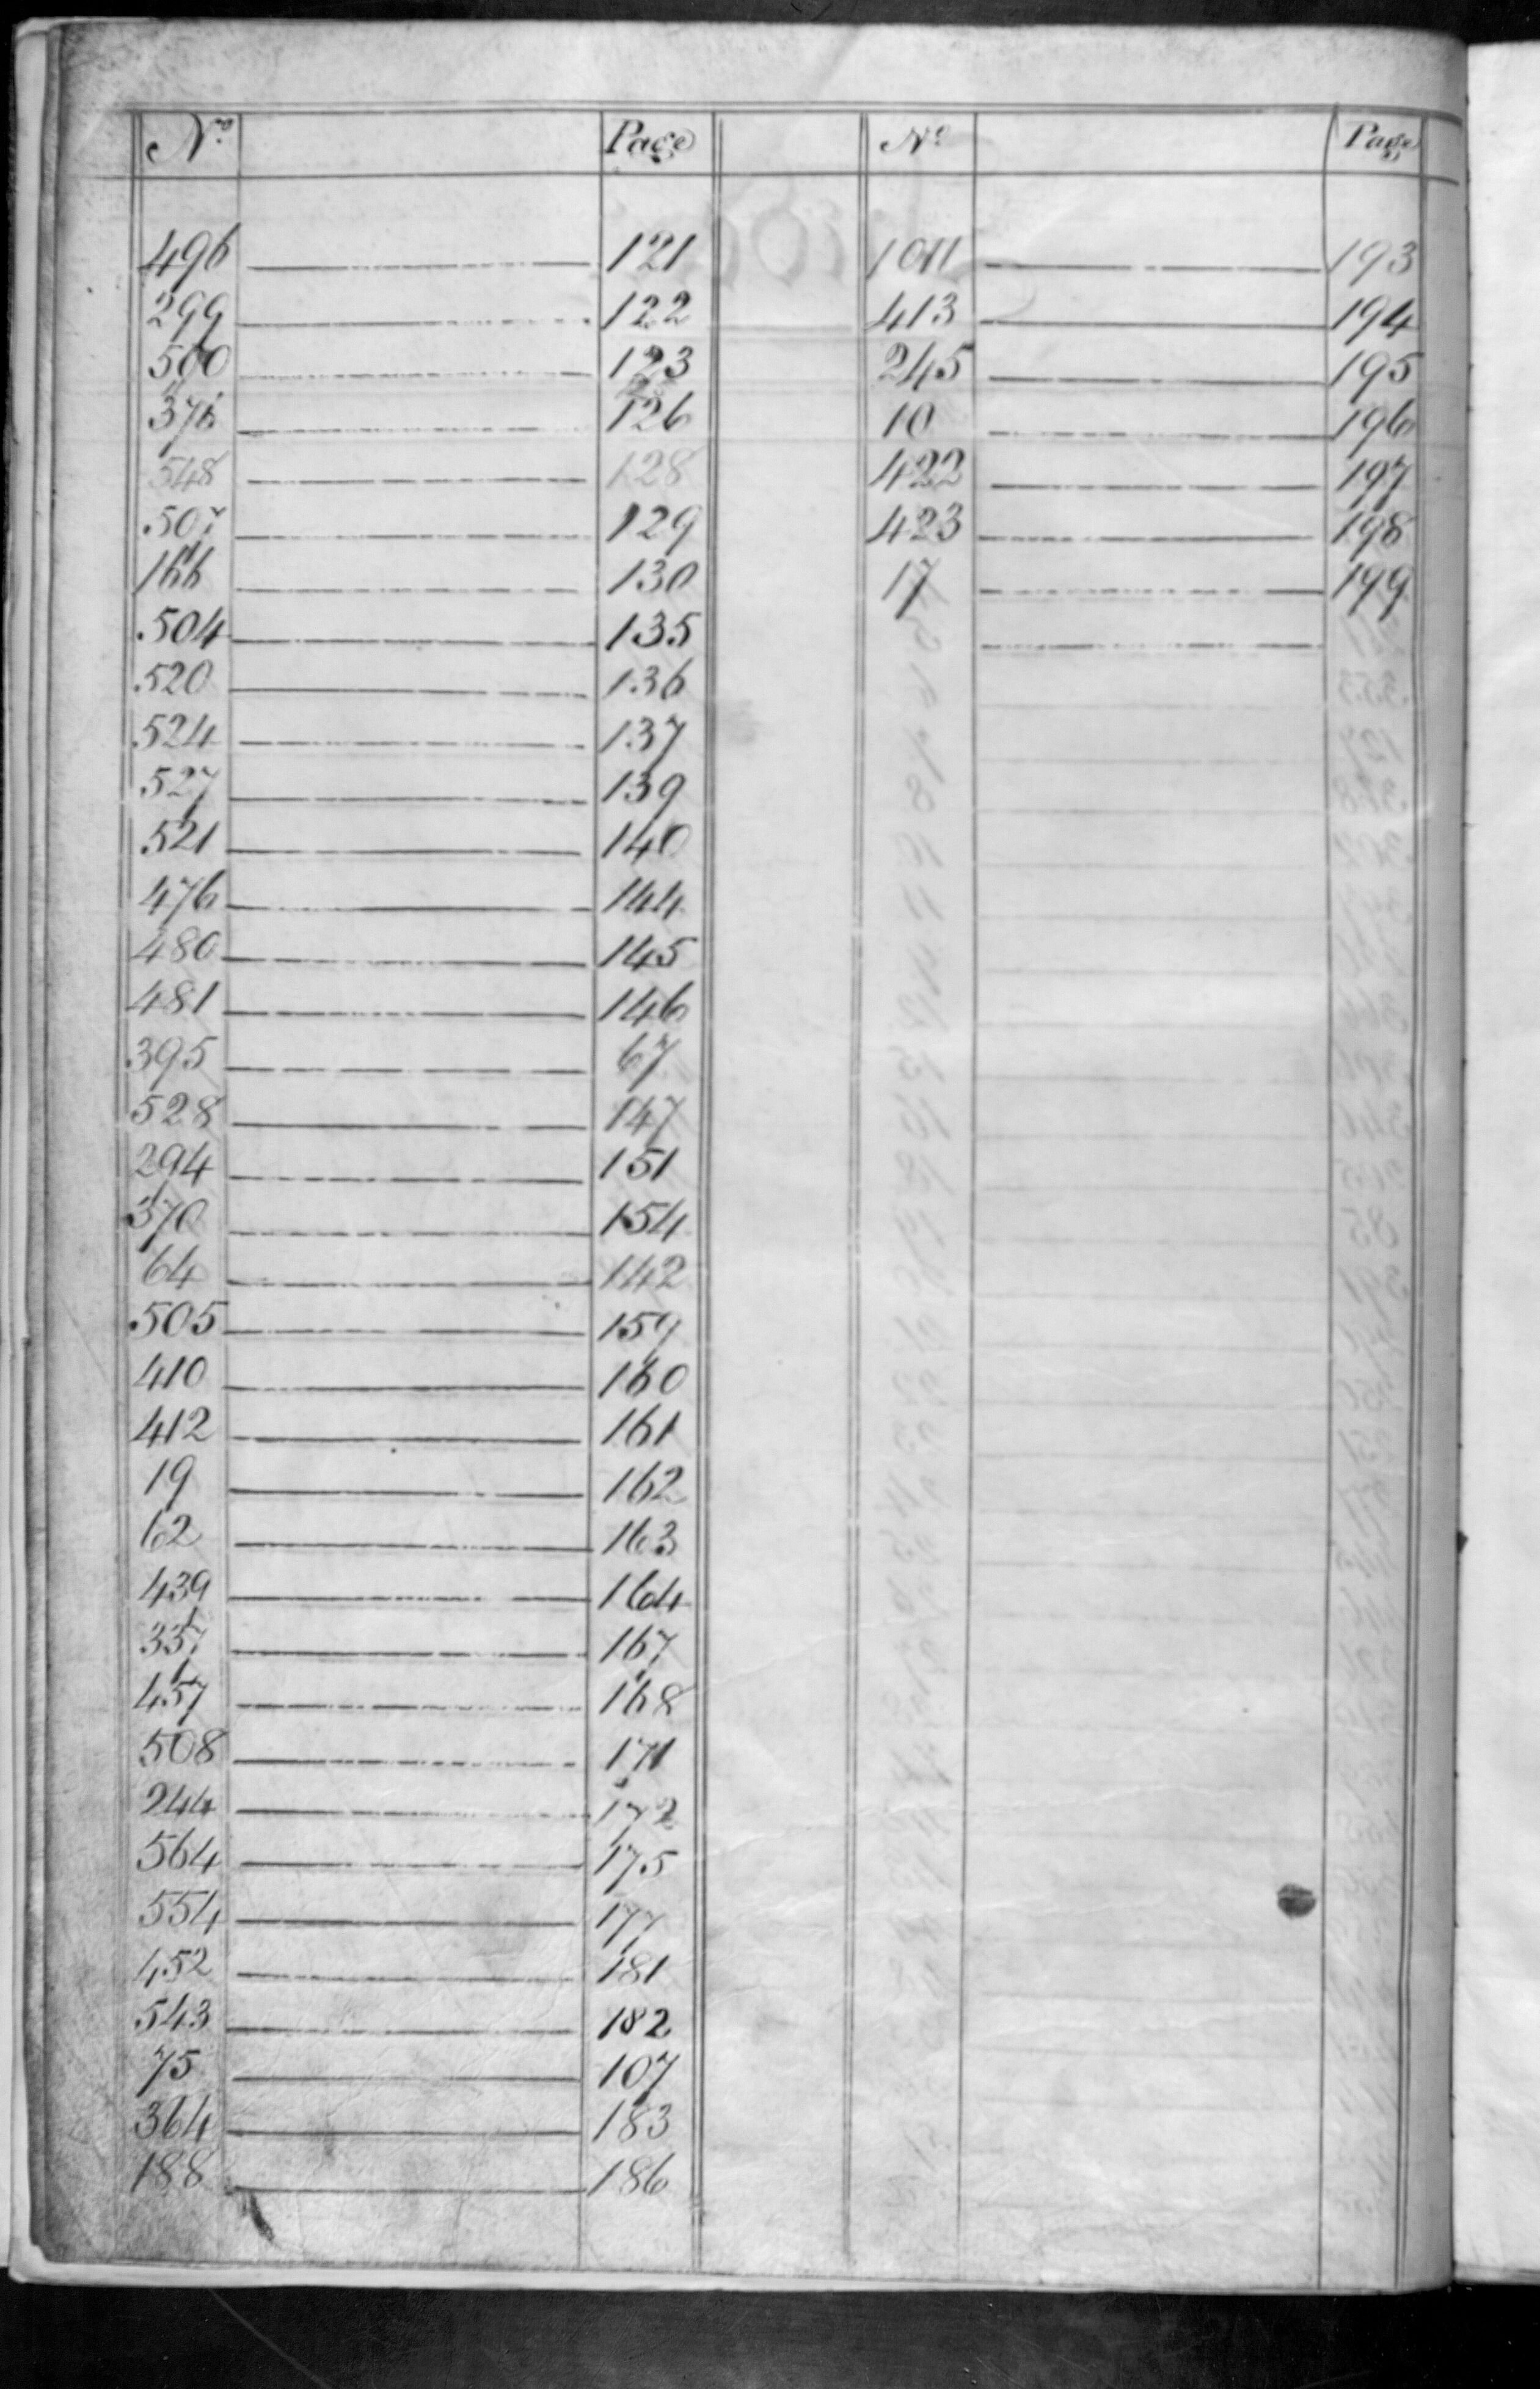 No Page No Page
496 121 1011 193
299 122 413 194
500 123 245 195
376 126 10 196
548 128 422 197
507 129 423 198
166 130 17 199
504 135
520 136
524 137
527 139
521 140
476 144
480 145
481 146
395 67
528 147
294 151
370 154
64 142
505 159
410 160
412 161
19 162
62 163
439 164
337 167
457 168
508 171
244 172
564 175
554 177
452 181
543 182
75 107
364 183
188 186